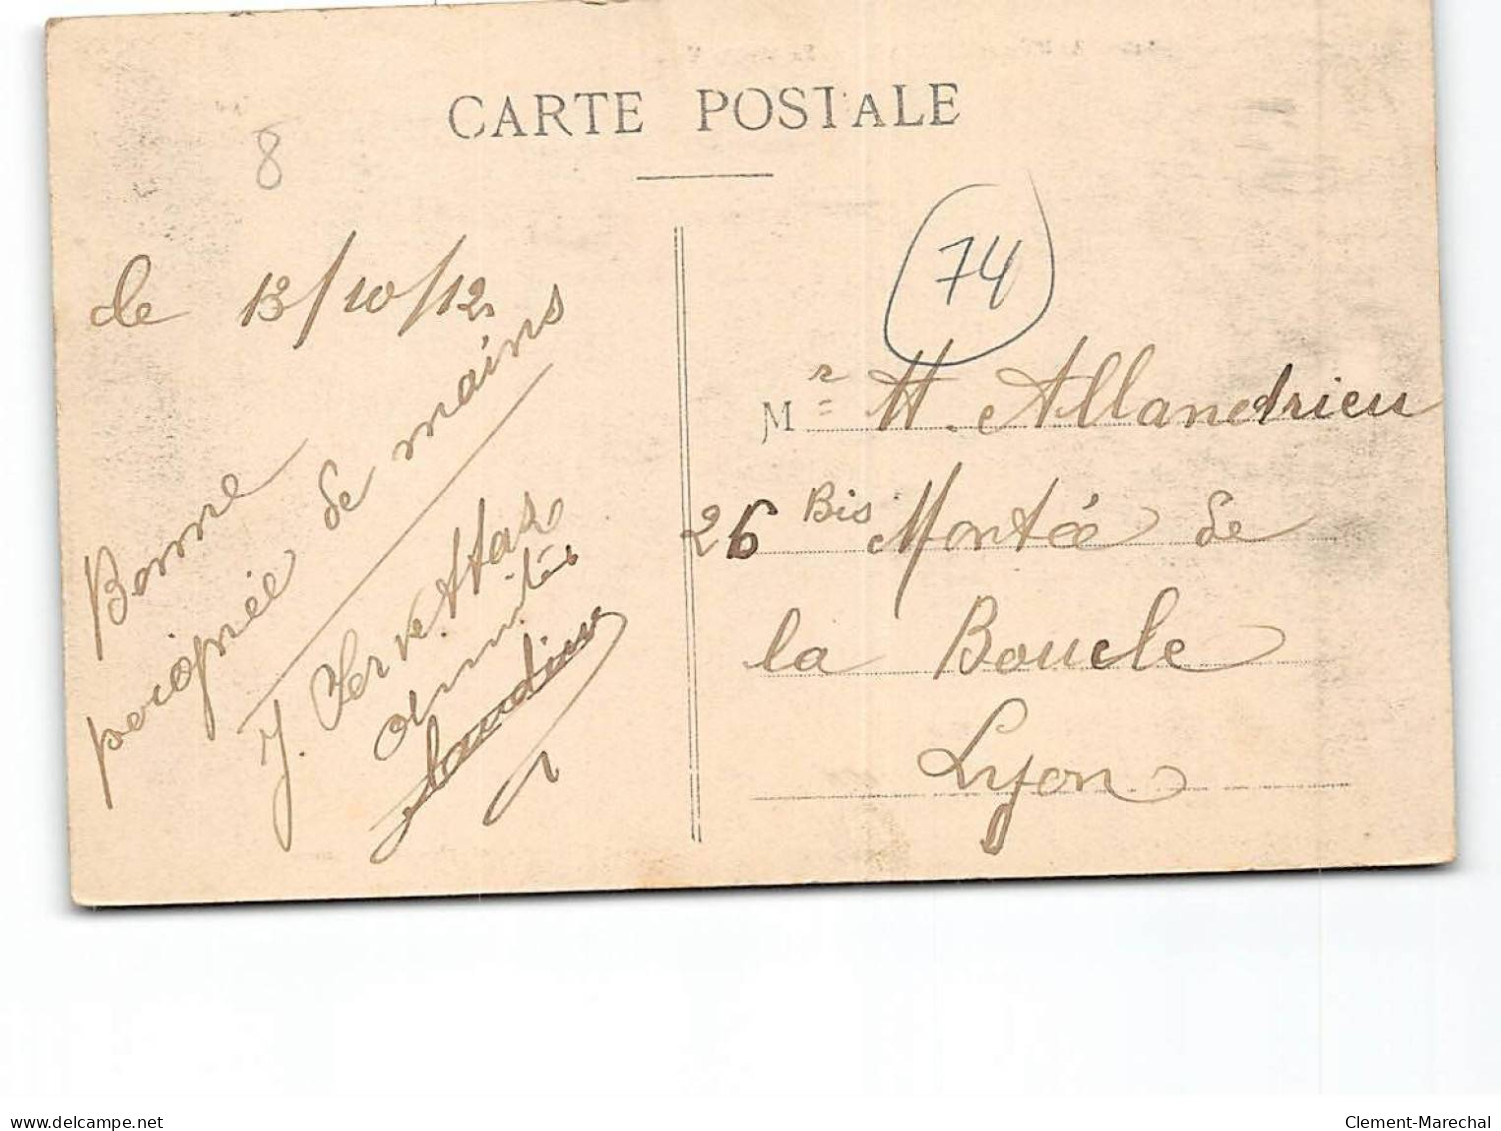 CARTE POSTALE
8
le 13/10/12
Bonne
poignée de mains
J. Servettaz
amitiés
Claudine
74
M r H. Allandrieu
26 Bis Montée de
la Boucle
Lyon
delcampe.net
Clement-Marechal